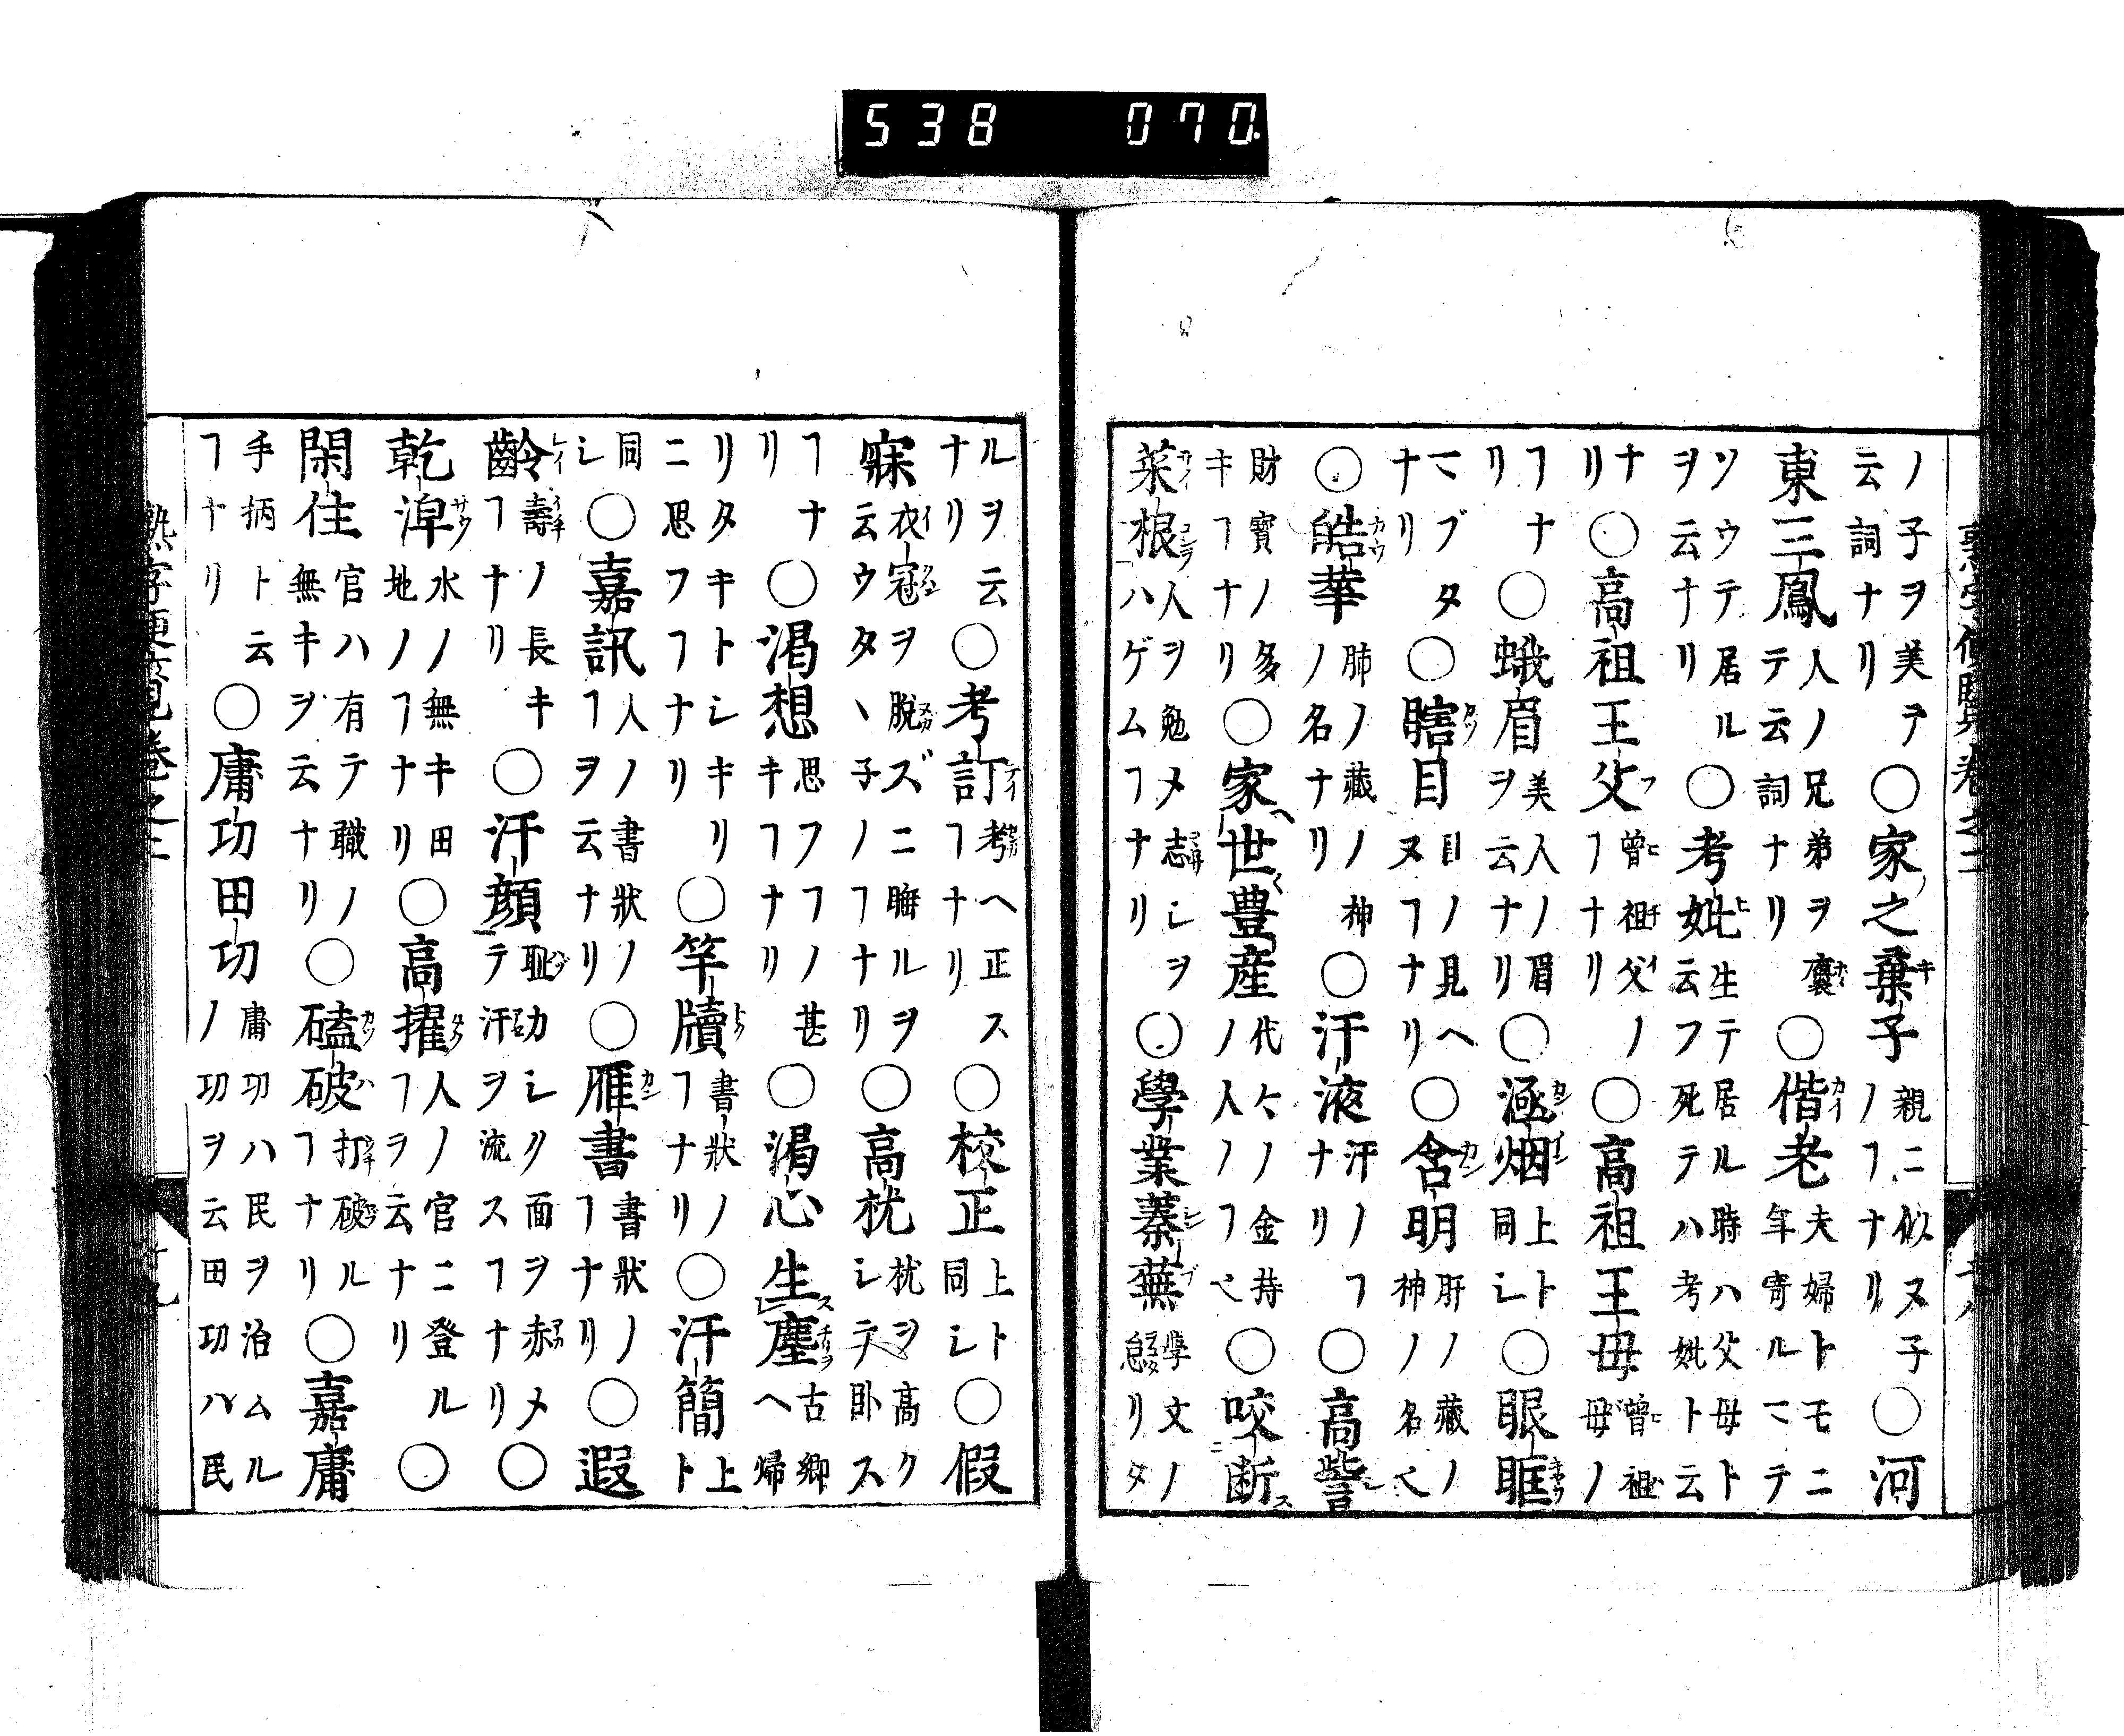 ノ子ヲ美テ云詞ナリ○家之棄子親ニ似ヌ子ノヿナリ○河
東三鳳人ノ兄弟ヲ褒テ云詞ナリ○偕老夫婦トモニ年寄ルマテ
ソウテ居ルヲ云ナリ○考妣生テ居ル時ハ父母ト云フ死テハ考妣ト云
ナリ○高祖王父曾祖父ノヿナリ○高祖王母曾祖母ノ
ヿナリ○蛾眉美人ノ眉ヲ云ナリ○涵烟上ト同シ○眼眶
マブタナリ○瞎目目ノ見ヘヌヿナリ○含明肝ノ藏ノ神ノ名也
○皓華肺ノ藏ノ神ノ名ナリ○汗液汗ノヿナリ○高訾
財寶ノ多キヿナリ○家世豊産代々ノ金持ノ人ノヿ也○咬断
菜根人ヲ勉メ志シヲハゲムヿナリ○學業蓁蕪學文ノ怠リタ
ルヲ云ナリ○考訂考ヘ正スヿナリ○校正上ト同シ○假
寐衣冠ヲ脱ズニ睡ルヲ云ウタヽ子ノヿナリ○高枕枕ヲ高クシテ臥ス
ヿナリ○渇想思フヿノ甚キヿナリ○渇心生塵古郷ヘ帰
リタキトシキリニ思フヿナリ○竿牘書狀ノヿナリ○汗簡上ト
同シ○嘉訊人ノ書狀ノヿヲ云ナリ○雁書書狀ノヿナリ○遐
齡壽ノ長キヿナリ○汗顔耻カシク面ヲ赤メテ汗ヲ流スヿナリ○
乾淖水ノ無キ田地ノヿナリ○高擢人ノ官ニ登ルヿヲ云ナリ○
閑住官ハ有テ職ノ無キヲ云ナリ○磕破打破ルヿナリ○嘉庸
手柄ト云ヿナリ○庸功田功庸功ハ民ヲ治ムルノ功ヲ云田功ハ民
538 070